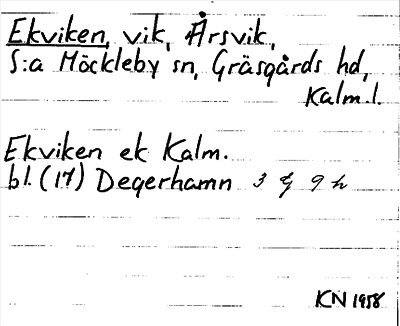 Ekviken, vik, Årsvik,
S:a Möckleby sn, Gräsgårds hd,
Kalm. l.
Ekviken ek Kalm.
bl. (17) Degerhamn 3 G 9 h
KN 1958